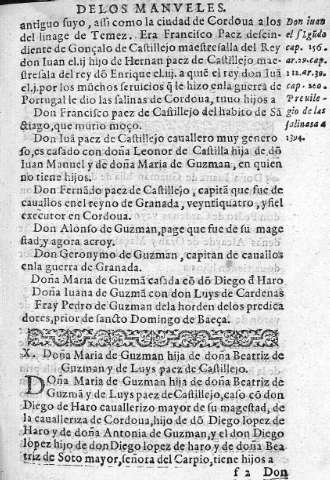 DELOS MANVELES.
antiguo suyo, assi como la ciudad de Cordoua a los
del linage de Temez. Era Francisco Paez descin-
diente de Gonçalo de Castillejo maestresalla del Rey
don Iuan el.ij. hijo de Hernan paez de Castillejo mae-
stresala del rey dō Enrique el.iij. a quiē el rey don Iuā
el.j. por los muchos seruicios q̃ le hizo enla guerra de
Portugal le dio las salinas de Cordoua, tuuo hijos a
Don Francisco paez de Castillejo del habito de Sā
ctiago, que murio moço.
Don Iuā paez de Castillejo cauallero muy genero
so, es casado con doña Leonor de Castilla hija de dō
Iuan Manuel y de doña Maria de Guzman, en quien
no tiene hijos.
Don Fernādo paez de Castillejo, capitā que fue de
cauallos en el reyno de Granada, veyntiquatro, y fiel
executor en Cordoua.
Don Alonso de Guzman, page que fue de su mage
stad, y agora acroy.
Don Geronymo de Guzman, capitan de cauallos
enla guerra de Granada.
Doña Maria de Guzmā casada cō dō Diego đ Haro
Doña Iuana de Guzmā con don Luys de Cardenas
Fray Pedro de Guzman dela horden delos predica
dores, prior de sancto Domingo de Baeça.
Don Iuan
el sēgūdo
cap. 156.
ar. 29. cap.
112. ar. 30.
cap. 200.
Preuile-
gio de las
salinas a
1394.
X. Doña Maria de Guzman hija de doña Beatriz de
Guzman y de Luys paez de Castillejo.
Doña Maria de Guzman hija de doña Beatriz de
Guzmā y de Luys paez de Castillejo, caso cō don
Diego de Haro cauallerizo mayor de su magestad, de
la caualleriza de Cordoua, hijo de dō Diego lopez de
Haro y de doña Antonia de Guzman, y el don Diego
lopez hijo de don Diego lopez de haro y de doña Bea
triz de Soto mayor, señora del Carpio, tiene hijos a
f 2 Don